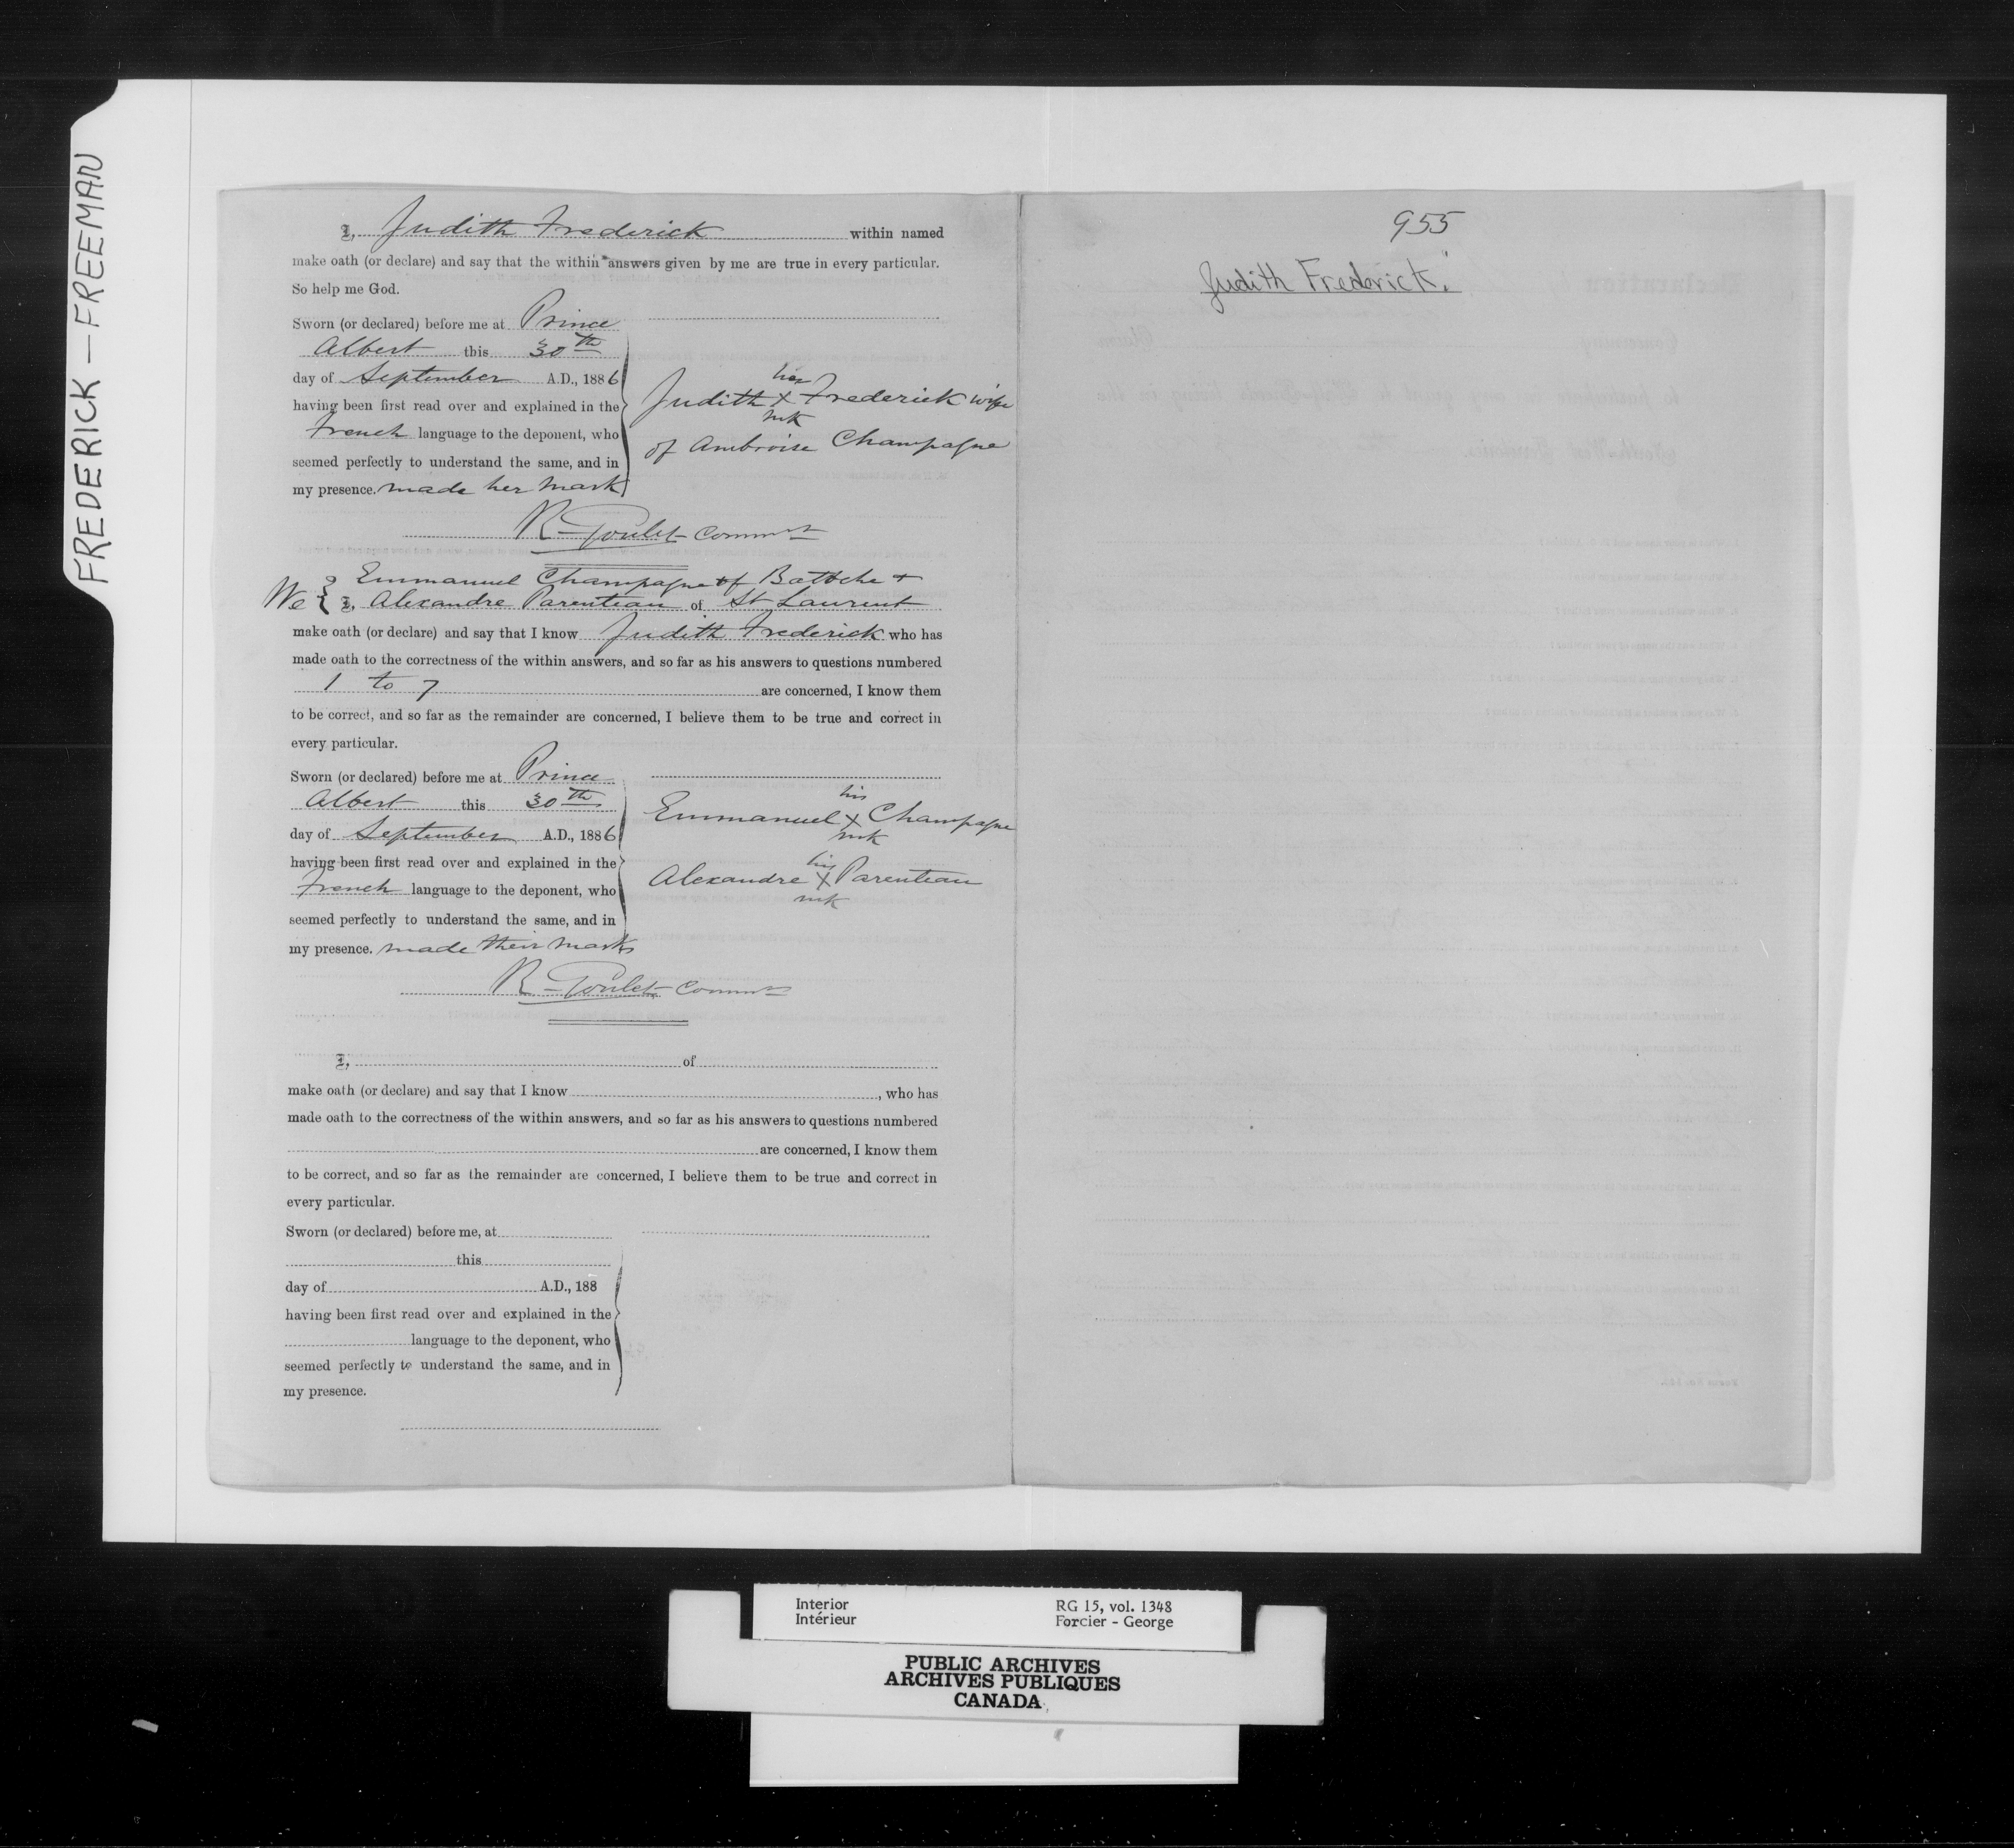 FREDERICK — FREEMAN
I, Judith Frederick within named
make oath (or declare) and say that the within answers given by me are true in every particular.
So help me God.
Sworn (or declared) before me at Prince
Albert this 30th
day of September A.D., 1886
having been first read over and explained in the
French language to the deponent, who
seemed perfectly to understand the same, and in
my presence. made her mark
her
Judith X Frederick wife
mk
of Ambroise Champagne
R. Goulet Commr
Emmanuel Champagne of Batoche +
We { I, Alexandre Parenteau of St Laurent
make oath (or declare) and say that I know Judith Frederick who has
made oath to the correctness of the within answers, and so far as his answers to questions numbered
1 to 7 are concerned, I know them
to be correct, and so far as the remainder are concerned, I believe them to be true and correct in
every particular.
Sworn (or declared) before me at Prince
Albert this 30th
day of September A.D., 1886
having been first read over and explained in the
French language to the deponent, who
seemed perfectly to understand the same, and in
my presence. made their marks
his
Emmanuel X Champagne
mk
his
Alexandre X Parenteau
mk
R. Goulet Commr
I, of
make oath (or declare) and say that I know , who has
made oath to the correctness of the within answers, and so far as his answers to questions numbered
are concerned, I know them
to be correct, and so far as the remainder are concerned, I believe them to be true and correct in
every particular.
Sworn (or declared) before me, at
this
day of A.D., 188
having been first read over and explained in the
language to the deponent, who
seemed perfectly to understand the same, and in
my presence.
955
Judith Frederick.
Interior
Intérieur
RG 15, vol. 1348
Forcier - George
PUBLIC ARCHIVES
ARCHIVES PUBLIQUES
CANADA